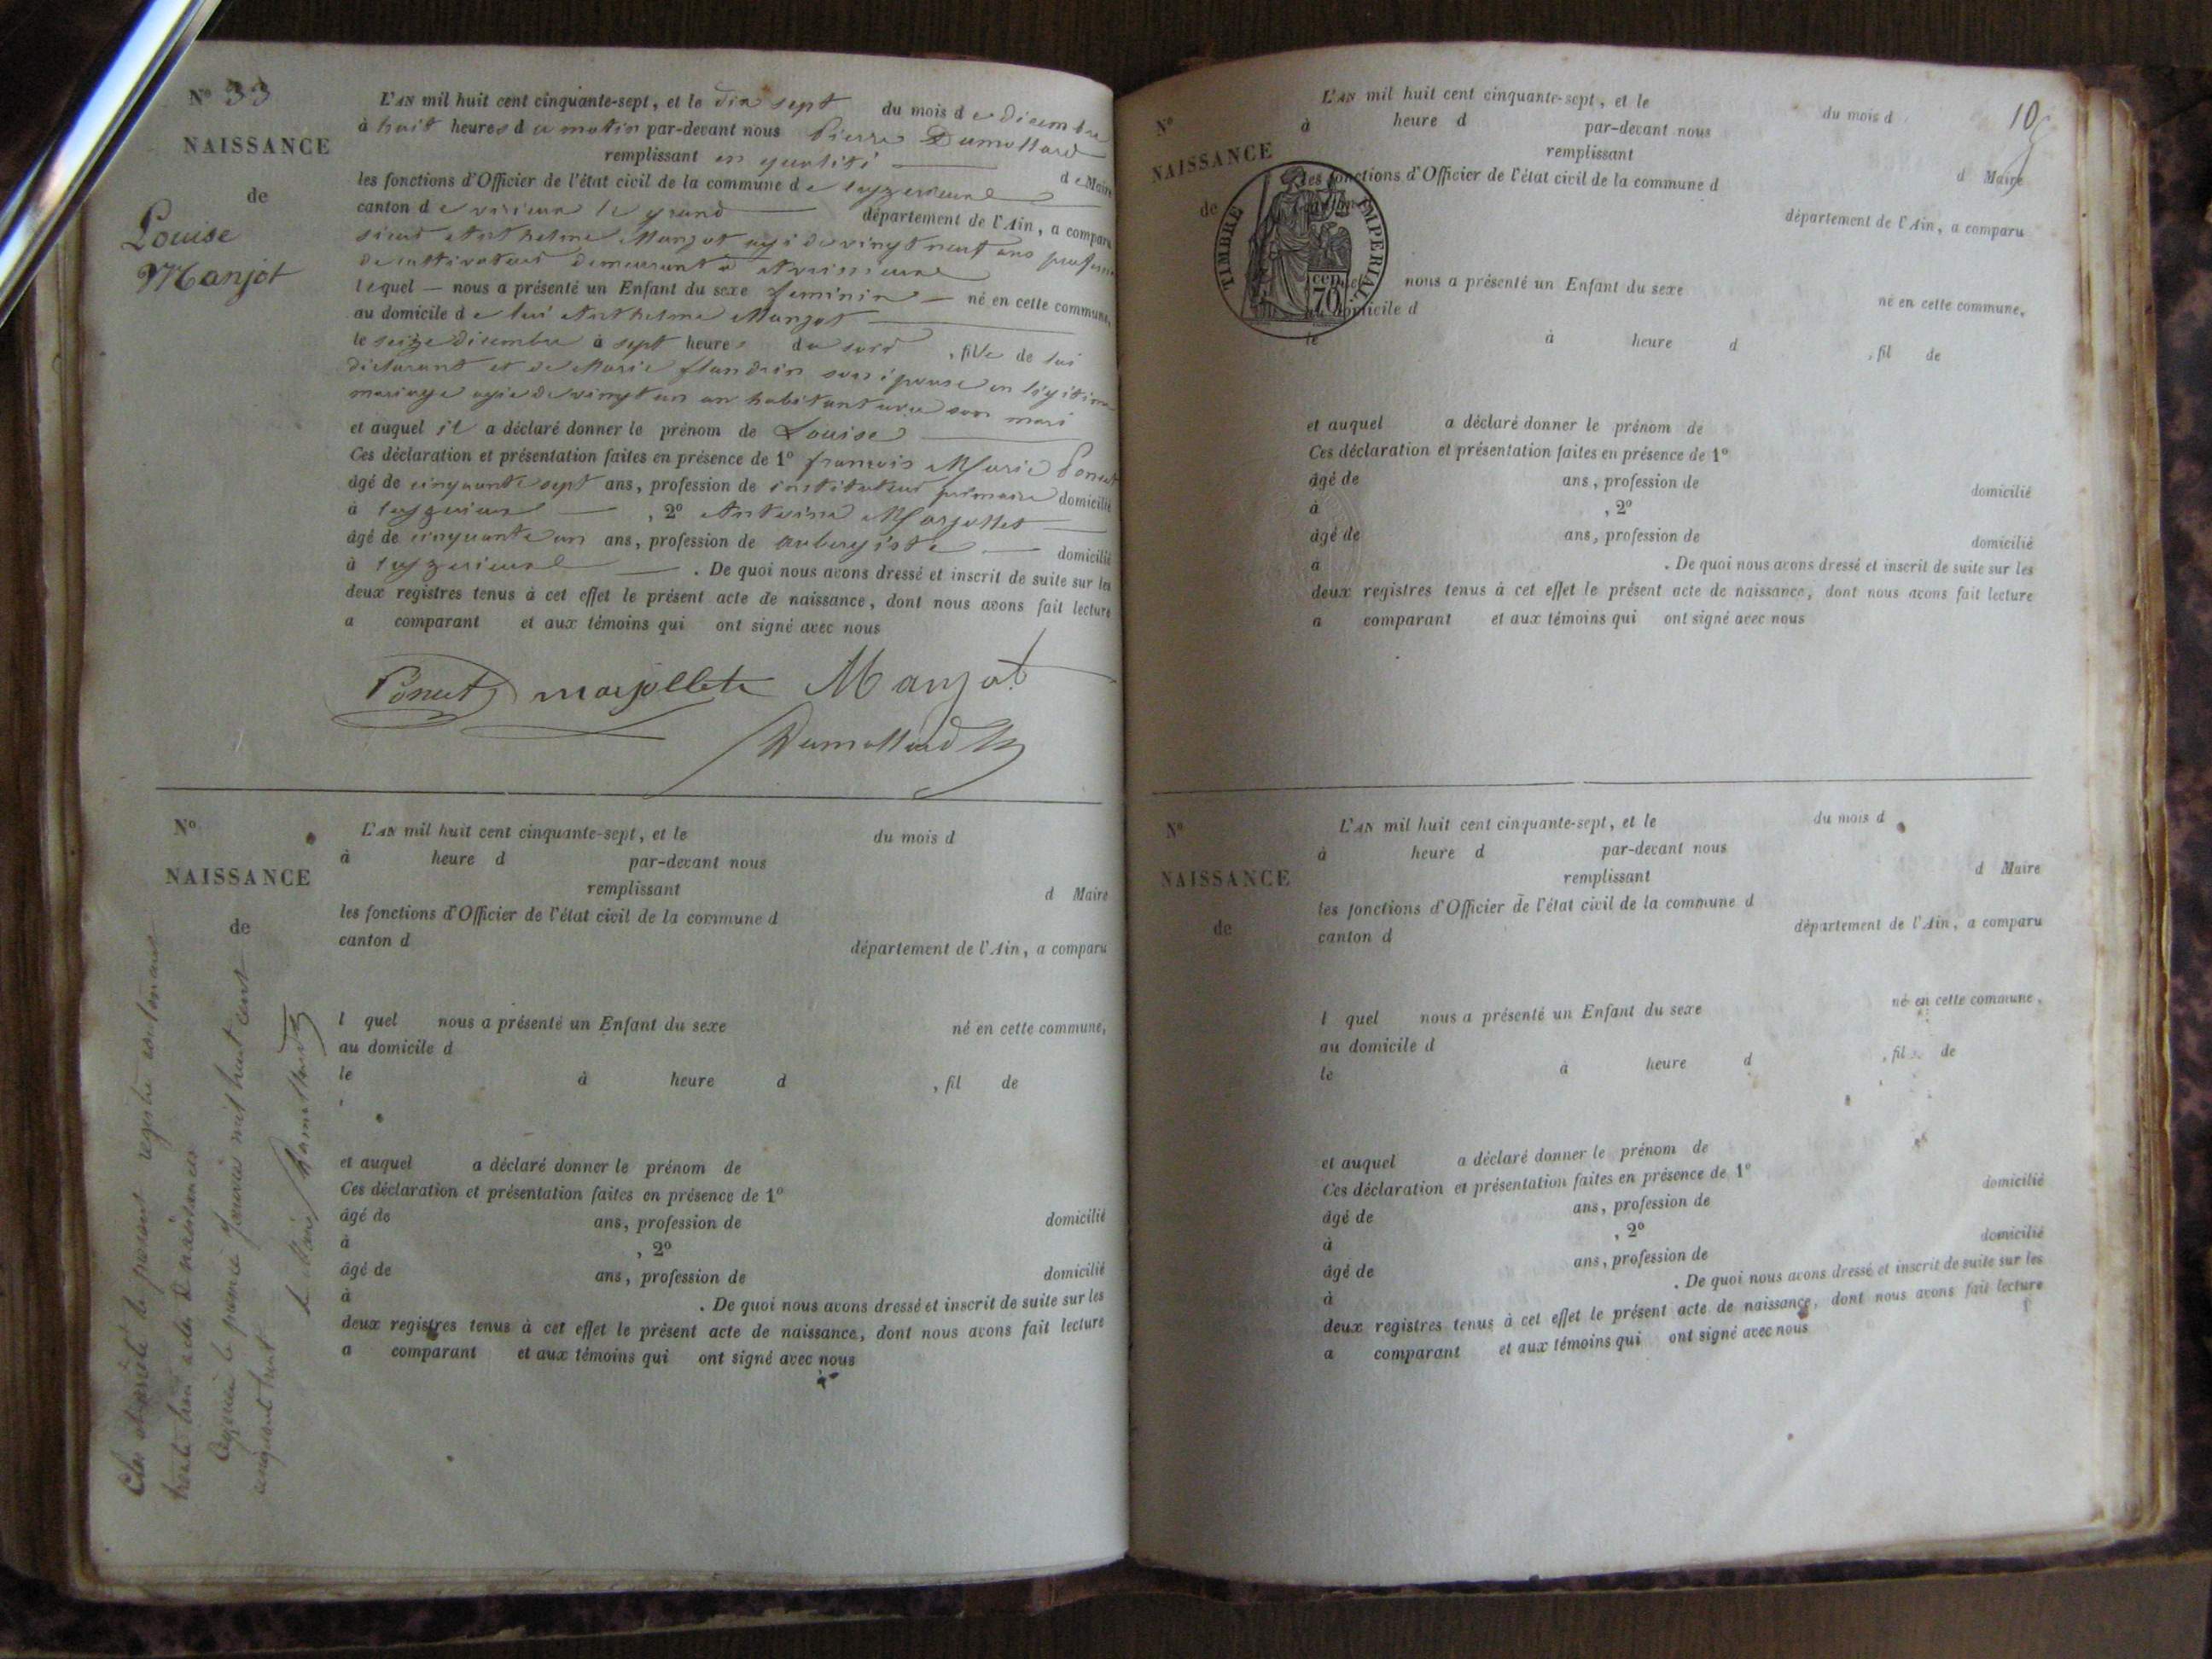 N° 33
NAISSANCE
de
Louise
Manjot
L'AN mil huit cent cinquante-sept, et le dix sept du mois de décembre
à huit heures du matin par-devant nous Pierre Dumollard
remplissant en qualité de Maire
les fonctions d'Officier de l'état civil de la commune de
canton de virieux le grand département de l'Ain, a comparu
sieur Anthelme Manjot agé de vingt neuf ans profession
de cultivateur demeurant à
lequel nous a présenté un Enfant du sexe féminin né en cette commune,
au domicile de lui Anthelme Manjot
le seize décembre à sept heures du soir, fille de lui
déclarant et de Marie flandrin son épouse en légitime
mariage agée de vingt un an habitant avec son mari
et auquel il a déclaré donner le prénom de Louise
Ces déclaration et présentation faites en présence de 1° francois Marie Ponut
âgé de cinquante sept ans, profession de instituteur primaire domicilié
à , 2° Antoine Marjollet
âgé de cinquante un ans, profession de aubergiste domicilié
à . De quoi nous avons dressé et inscrit de suite sur les
deux registres tenus à cet effet le présent acte de naissance, dont nous avons fait lecture
a comparant et aux témoins qui ont signé avec nous
Ponut marjollet Manjot
Dumollard
N°
NAISSANCE
de
L'AN mil huit cent cinquante-sept, et le du mois d
à heure d par-devant nous
remplissant d Maire
les fonctions d'Officier de l'état civil de la commune d
canton d département de l'Ain, a comparu
l quel nous a présenté un Enfant du sexe né en cette commune,
au domicile d
le à heure d , fil de
et auquel a déclaré donner le prénom de
Ces déclaration et présentation faites en présence de 1°
âgé de ans, profession de domicilié
à , 2°
âgé de ans, profession de domicilié
à . De quoi nous avons dressé et inscrit de suite sur les
deux registres tenus à cet effet le présent acte de naissance, dont nous avons fait lecture
a comparant et aux témoins qui ont signé avec nous
Clos et arrêté le présent registre contenant
trente trois actes de naissances
le premier Janvier mil huit cent
cinquante huit
Le Maire Dumollard
10
N°
NAISSANCE
de
TIMBRE IMPERIAL
70 cen
L'AN mil huit cent cinquante-sept, et le du mois d
à heure d par-devant nous
remplissant d Maire
les fonctions d'Officier de l'état civil de la commune d
département de l'Ain, a comparu
nous a présenté un Enfant du sexe né en cette commune,
domicile d
le à heure d , fil de
et auquel a déclaré donner le prénom de
Ces déclaration et présentation faites en présence de 1°
âgé de ans, profession de domicilié
à , 2°
âgé de ans, profession de domicilié
à . De quoi nous avons dressé et inscrit de suite sur les
deux registres tenus à cet effet le présent acte de naissance, dont nous avons fait lecture
a comparant et aux témoins qui ont signé avec nous
N°
NAISSANCE
de
L'AN mil huit cent cinquante-sept, et le du mois d
à heure d par-devant nous
remplissant d Maire
les fonctions d'Officier de l'état civil de la commune d
canton d département de l'Ain, a comparu
l quel nous a présenté un Enfant du sexe né en cette commune,
au domicile d
le à heure d , fil de
et auquel a déclaré donner le prénom de
Ces déclaration et présentation faites en présence de 1°
âgé de ans, profession de domicilié
à , 2°
âgé de ans, profession de domicilié
à . De quoi nous avons dressé et inscrit de suite sur les
deux registres tenus à cet effet le présent acte de naissance, dont nous avons fait lecture
a comparant et aux témoins qui ont signé avec nous